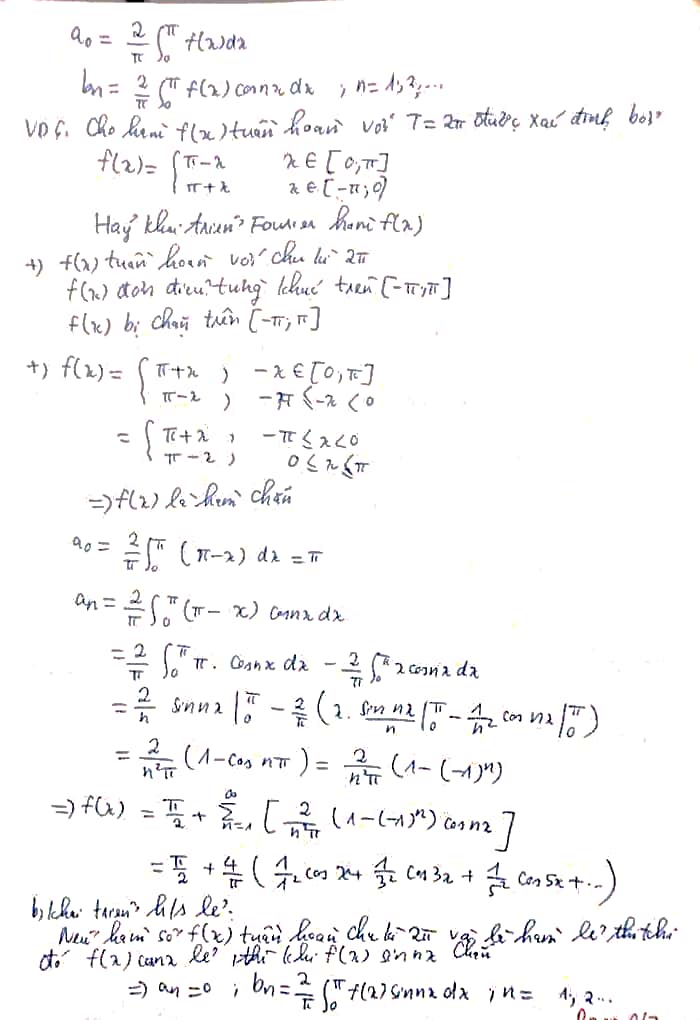 a₀ = 2/π ∫₀^π f(x)dx
bn = 2/π ∫₀^π f(x) cosnx dx ; n = 1, 2, ...
VD6. Cho hàm f(x) tuần hoàn với T = 2π được xác định bởi
f(x) = { π-x   x ∈ [0, π]
π+x   x ∈ [-π; 0)
Hãy khai triển Fourier hàm f(x)
+) f(x) tuần hoàn với chu kì 2π
f(x) đơn điệu từng khúc trên [-π, π]
f(x) bị chặn trên [-π; π]
+) f(x) = { π+x ; -x ∈ [0, π]
π-x ; -π ≤ -x < 0
= { π+x ; -π ≤ x < 0
π-x ; 0 ≤ x ≤ π
=> f(x) là hàm chẵn
a₀ = 2/π ∫₀^π (π-x) dx = π
an = 2/π ∫₀^π (π-x) cosnx dx
= 2/π ∫₀^π π. cosnx dx - 2/π ∫₀^π x cosnx dx
= 2/n sinnx |₀^π - 2/π (x. sin nx/n |₀^π - 1/n² cos nx |₀^π)
= 2/n²π (1-cos nπ) = 2/n²π (1-(-1)ⁿ)
=> f(x) = π/2 + Σ_{n=1}^∞ [2/n²π (1-(-1)ⁿ) cosnx]
= π/2 + 4/π (1/1² cos x + 1/3² cos 3x + 1/5² cos 5x + ...)
b) Khai triển h/s lẻ.
Nếu hàm số f(x) tuần hoàn chu kì 2π và là hàm lẻ thì khi
đó f(x) cosnx lẻ, thì khi f(x) sinnx chẵn
=> an = 0 ; bn = 2/π ∫₀^π f(x) sinnx dx ; n = 1, 2...